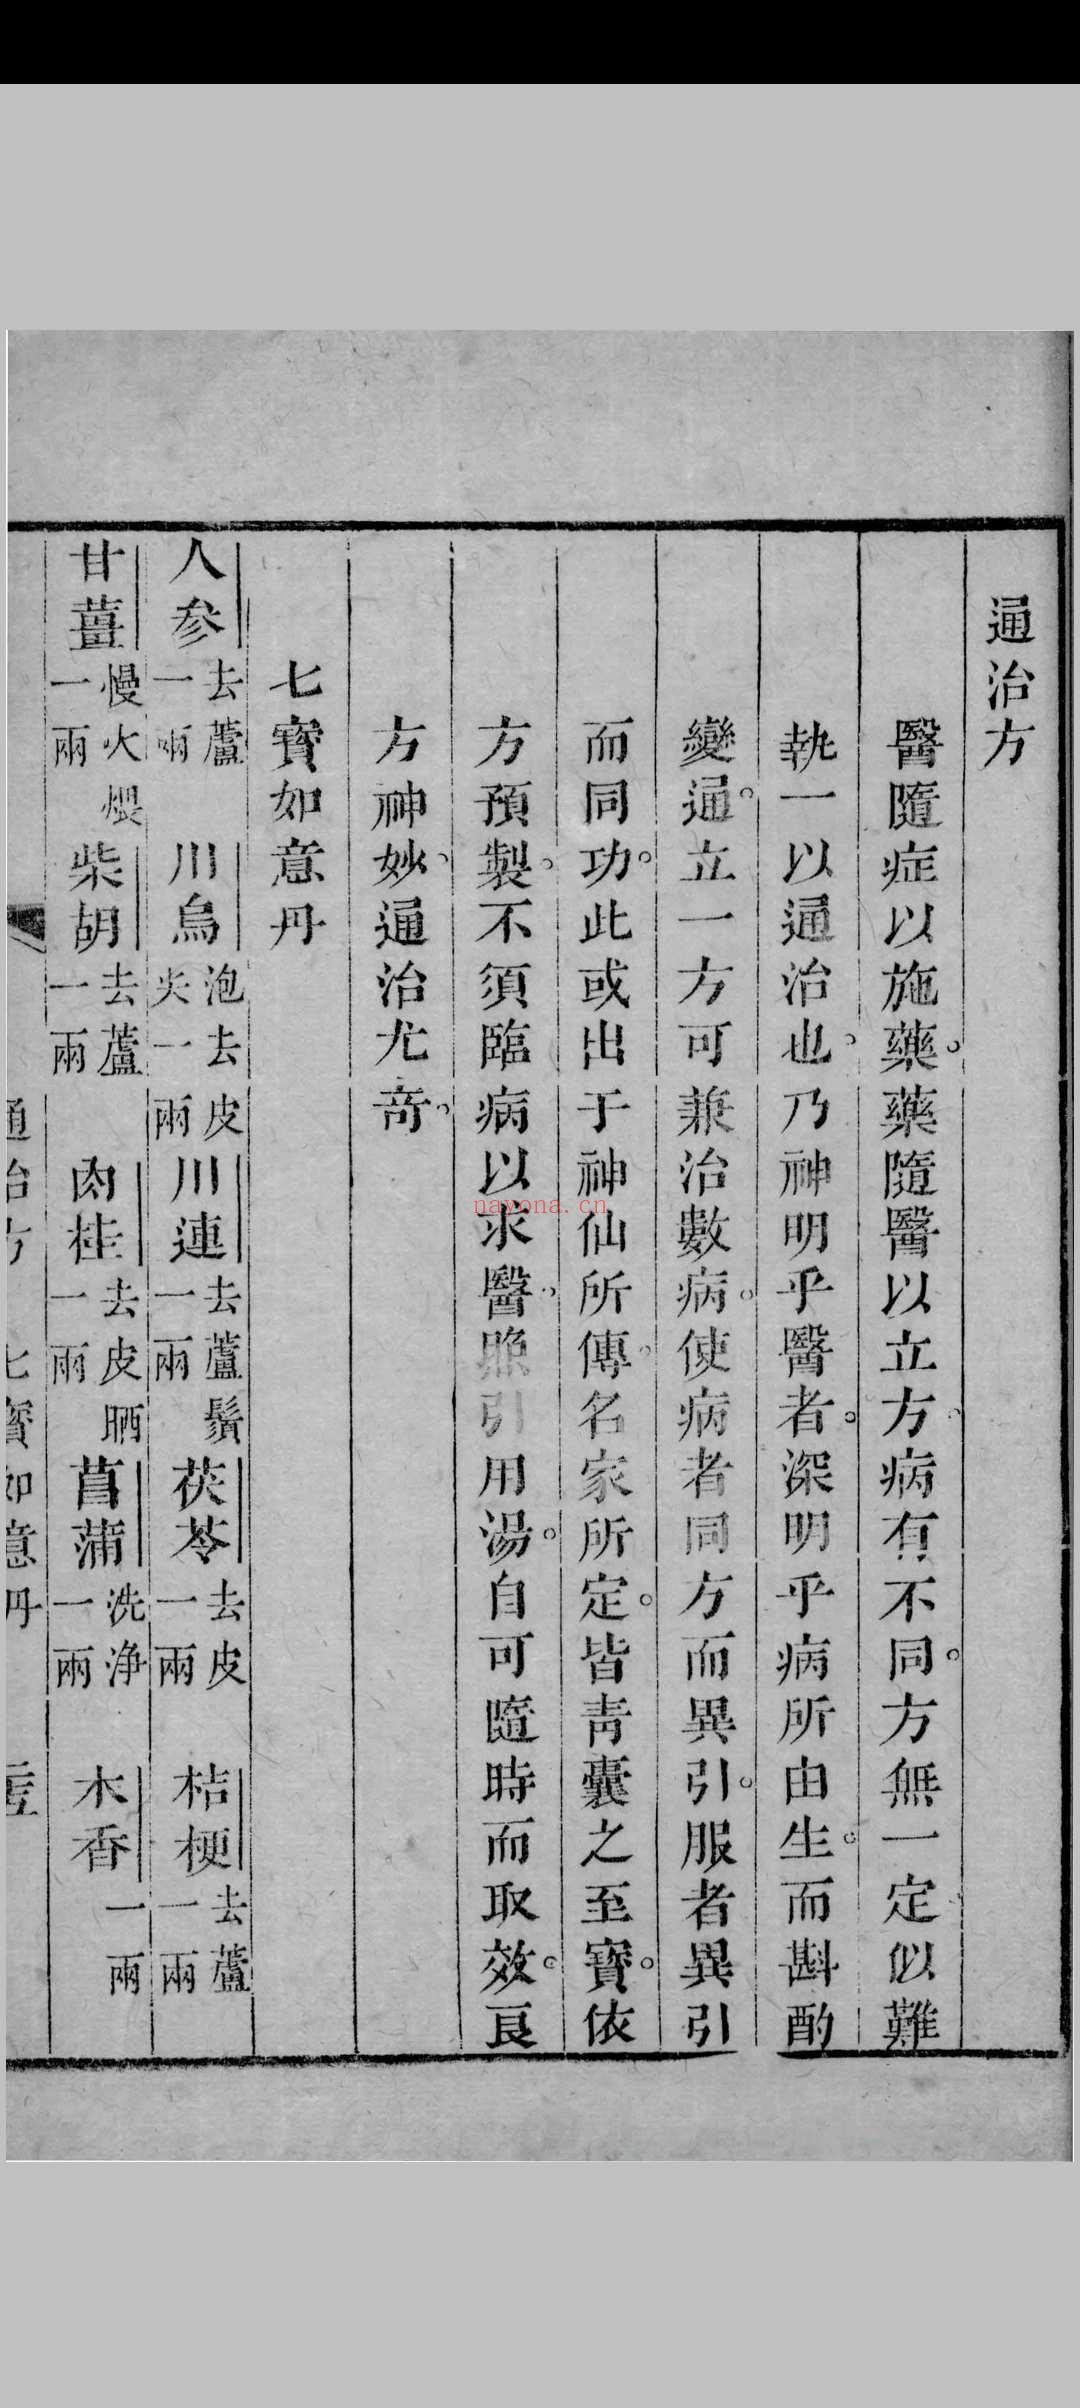 通治方
醫隨症以施藥。藥隨醫以立方。病有不同。方無一定。似難
執一以通治也。乃神明乎醫者。深明乎病所由生。而斟酌
變通。立一方可兼治數病。使病者同方而異引。服者異引
而同功。此或出于神仙所傳。名家所定。皆靑囊之至寶。依
方預製。不須臨病以求醫。照引用湯。自可隨時而取效。良
方神妙。通治尤竒。
七寶如意丹
人參去蘆一兩 川烏泡去皮尖一兩 川連去蘆鬚一兩 茯苓去皮一兩 桔梗去蘆一兩
甘薑慢火煨一兩 柴胡去蘆一兩 肉桂去皮晒一兩 菖蒲洗浄一兩 木香一兩
通治方 七寶如意丹
nayona.cn